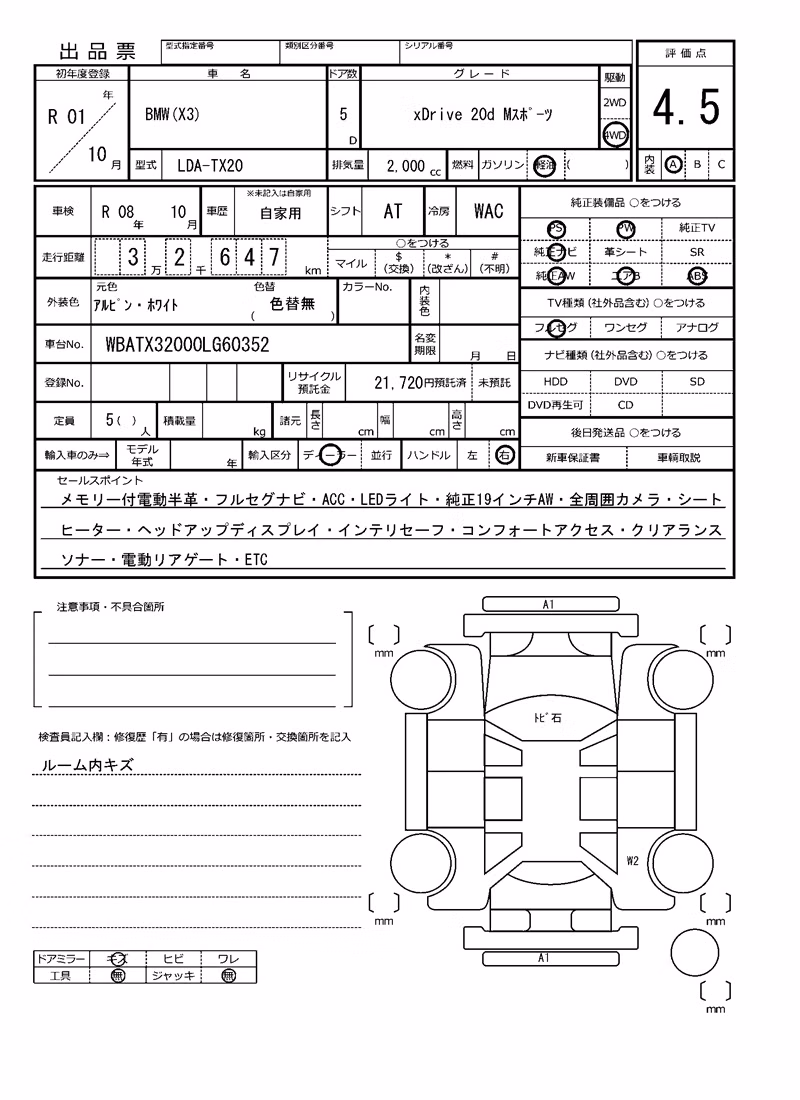 出品票
型式指定番号 類別区分番号 シリアル番号
評価点
初年度登録 車名 ドア数 グレード 駆動
R 01 年 10 月
BMW(X3) 5 D xDrive 20d Mスポーツ
2WD
4WD
4.5
型式 LDA-TX20 排気量 2,000 cc 燃料 ガソリン 軽油 ( )
内装 A B C
車検 R 08 年 10 月 車歴 ※未記入は自家用 自家用 シフト AT 冷房 WAC
純正装備品 ○をつける
PS PW 純正TV
純正ナビ 革シート SR
純正AW エアB ABS
走行距離 3 万 2 千 6 4 7 km
○をつける
マイル $(交換) *(改ざん) #(不明)
TV種類(社外品含む)○をつける
フルセグ ワンセグ アナログ
外装色 元色 アルピン・ホワイト 色替 色替無 ( ) カラーNo. 内装色
車台No. WBATX32000LG60352 名変期限 月 日
ナビ種類(社外品含む)○をつける
HDD DVD SD
DVD再生可 CD
登録No. リサイクル預託金 21,720円預託済 未預託
定員 5( ) 人 積載量 kg 諸元 長さ cm 幅 cm 高さ cm
後日発送品 ○をつける
新車保証書 車輌取説
輸入車のみ⇒ モデル年式 年 輸入区分 ディーラー 並行 ハンドル 左 右
セールスポイント
メモリー付電動半革・フルセグナビ・ACC・LEDライト・純正19インチAW・全周囲カメラ・シート
ヒーター・ヘッドアップディスプレイ・インテリセーフ・コンフォートアクセス・クリアランス
ソナー・電動リアゲート・ETC
注意事項・不具合箇所
A1
mm mm
トビ石
検査員記入欄:修復歴「有」の場合は修復箇所・交換箇所を記入
ルーム内キズ
W2
mm mm
A1
ドアミラー キズ ヒビ ワレ
工具 無 ジャッキ 無
mm